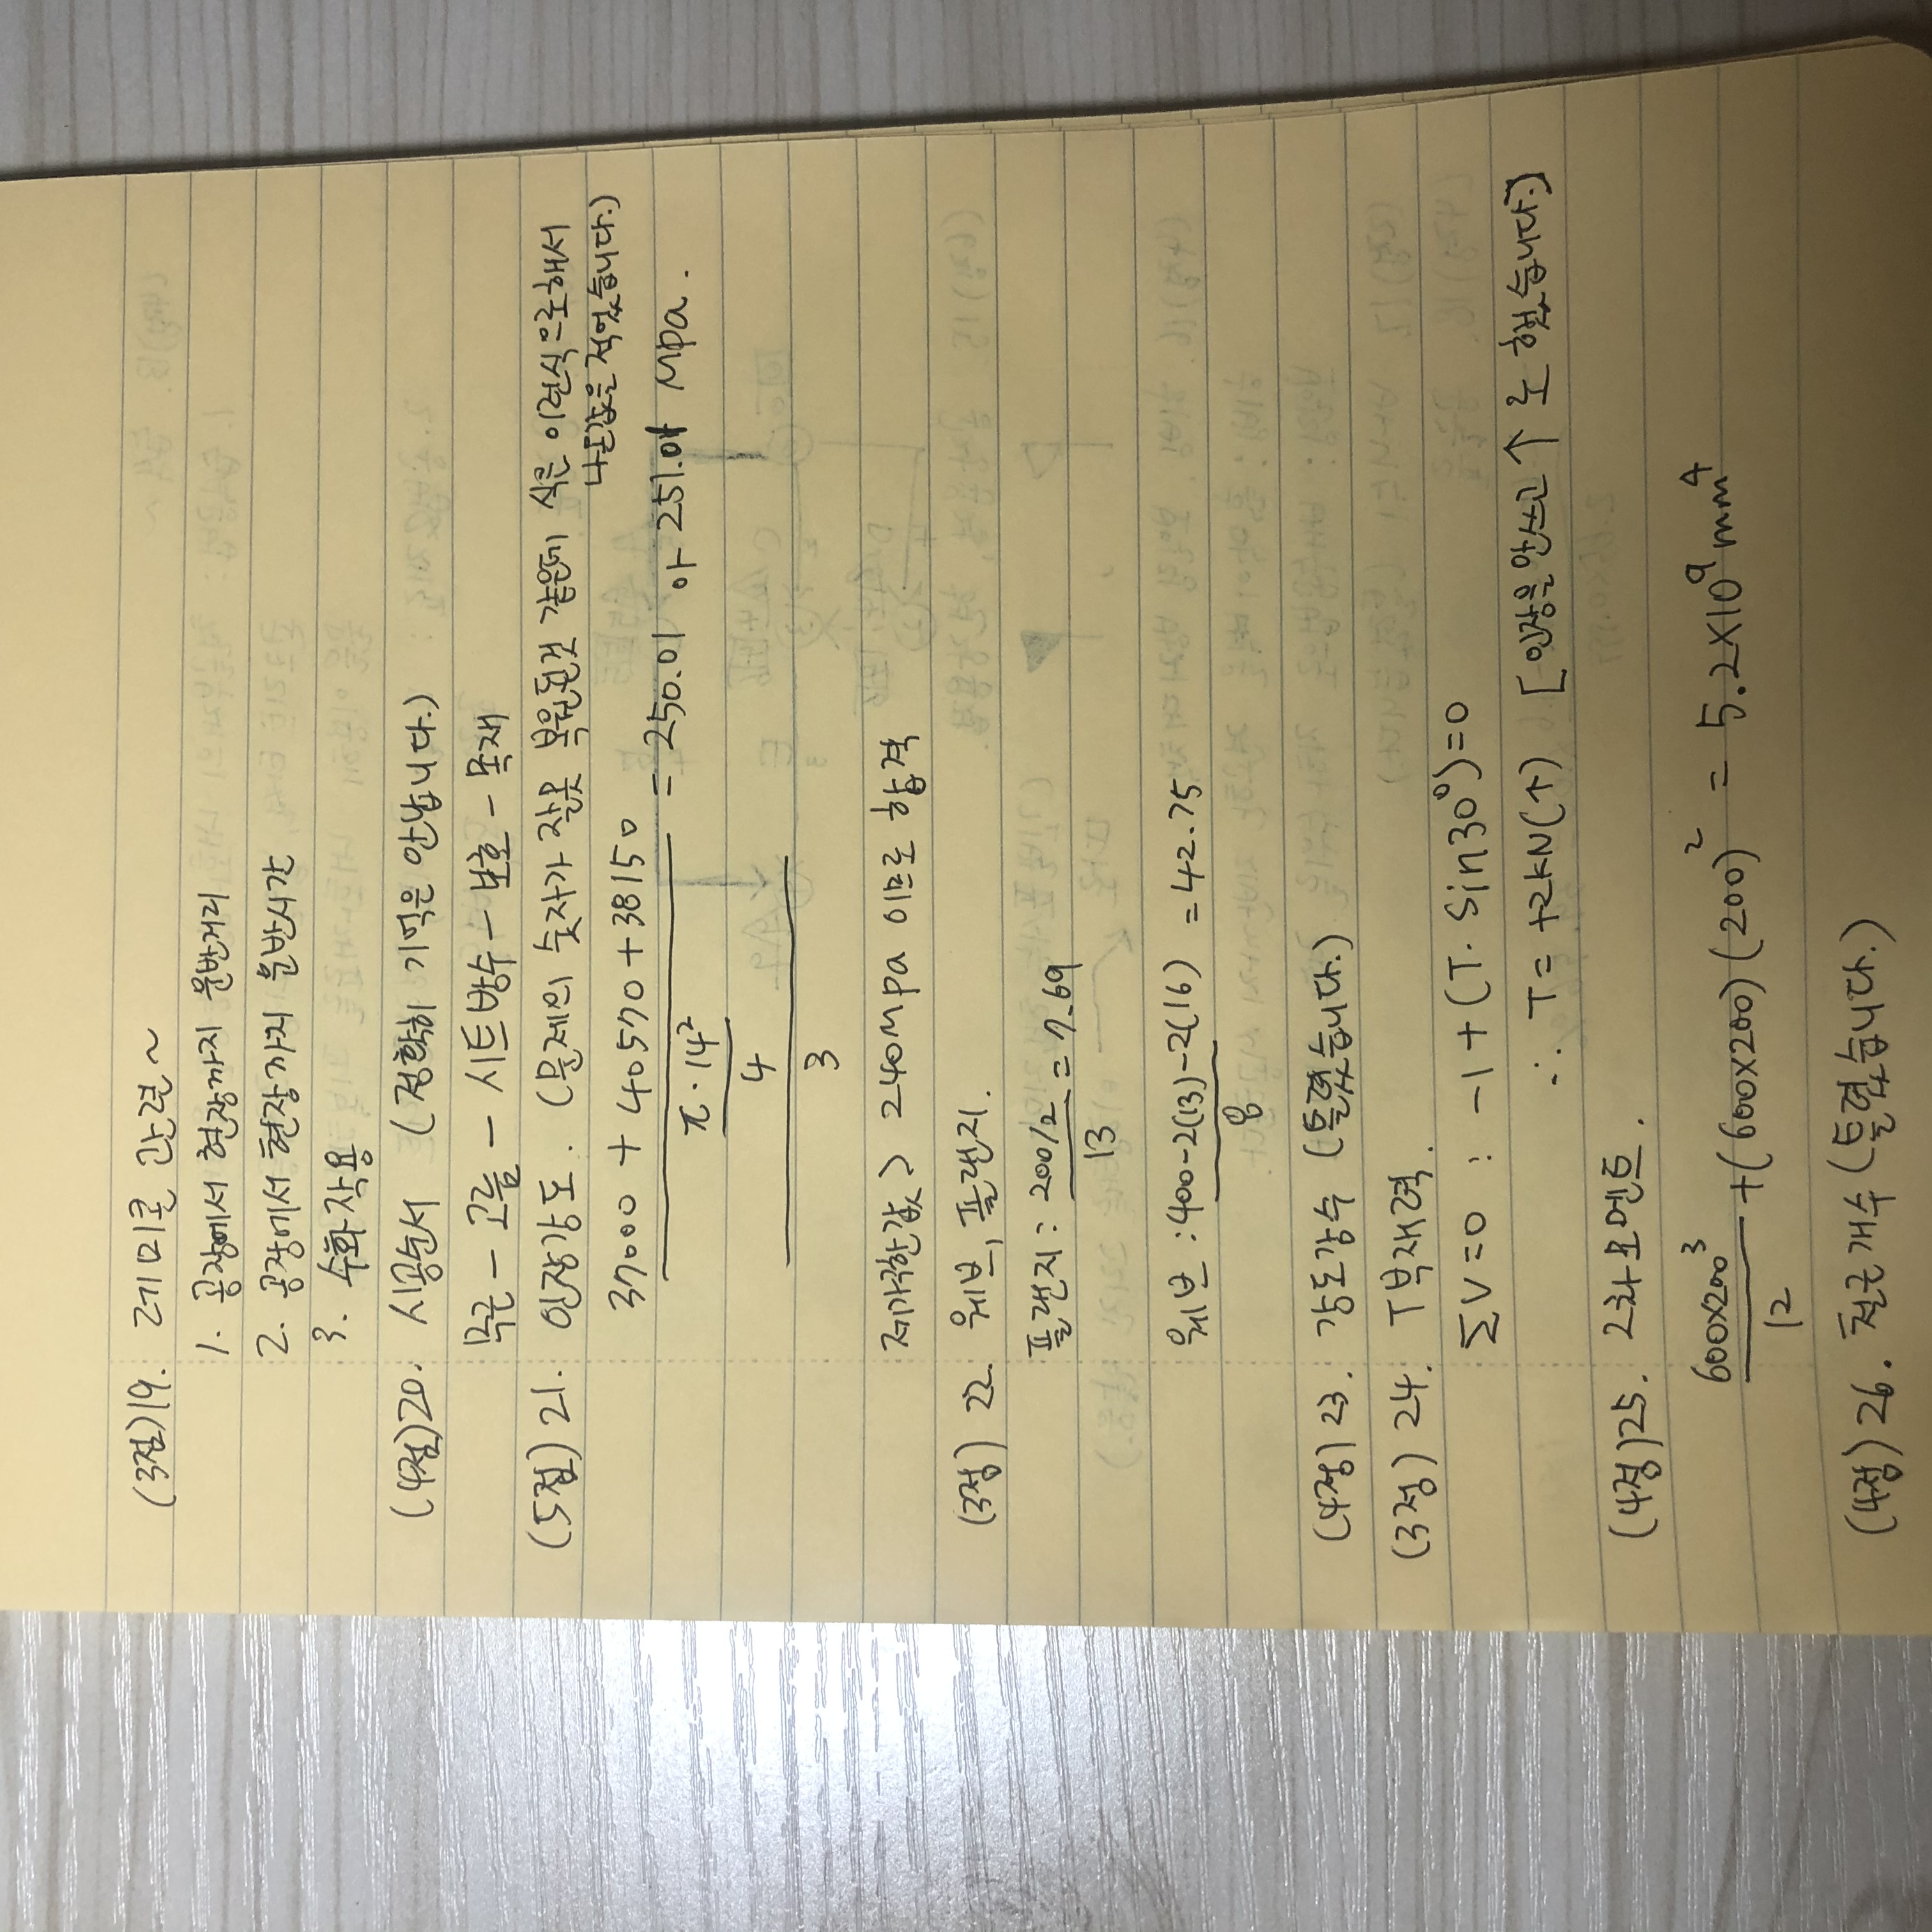 (3점)19. 레미콘 간결~
1. 공장에서 현장까지 운반거리
2. 공장에서 현장까지 운반시간
3. 수화작용
(4점)20. 시공순서 (정확히 기억은 안납니다.)
목큰 - 고늘 - 시트방수 - 보호 - 목재
(5점) 21. 인장강도. (문제의 숫자가 잘못 복원된것 같은데 식은 이런식으로해서
나온값을 적었습니다.)
37000 + 40570 + 38150
π·14²
4
3
= 250.01 아 251.01 Mpa.
제가구한값 > 240Mpa 이므로 합격
(3점) 22. 웨브, 플랜지.
플랜지 : 200/2 / 13 = 7.69
웨브 : 400-2(13)-2(16) / 8 = 42.75
(4점) 23. 강도감수 (틀렸습니다.)
(3점) 24. T부재력.
ΣV=0 : -1+(T·Sin30°)=0
∴ T= +2kN(↑) [인장을안쓰고 ↑ 로 했습니다.]
(4점)25. 2차모멘트.
600×200³ / 12 +(600×200)(200)² = 5.2×10⁹mm⁴
(4점) 26. 철근개수 (틀렸습니다.)